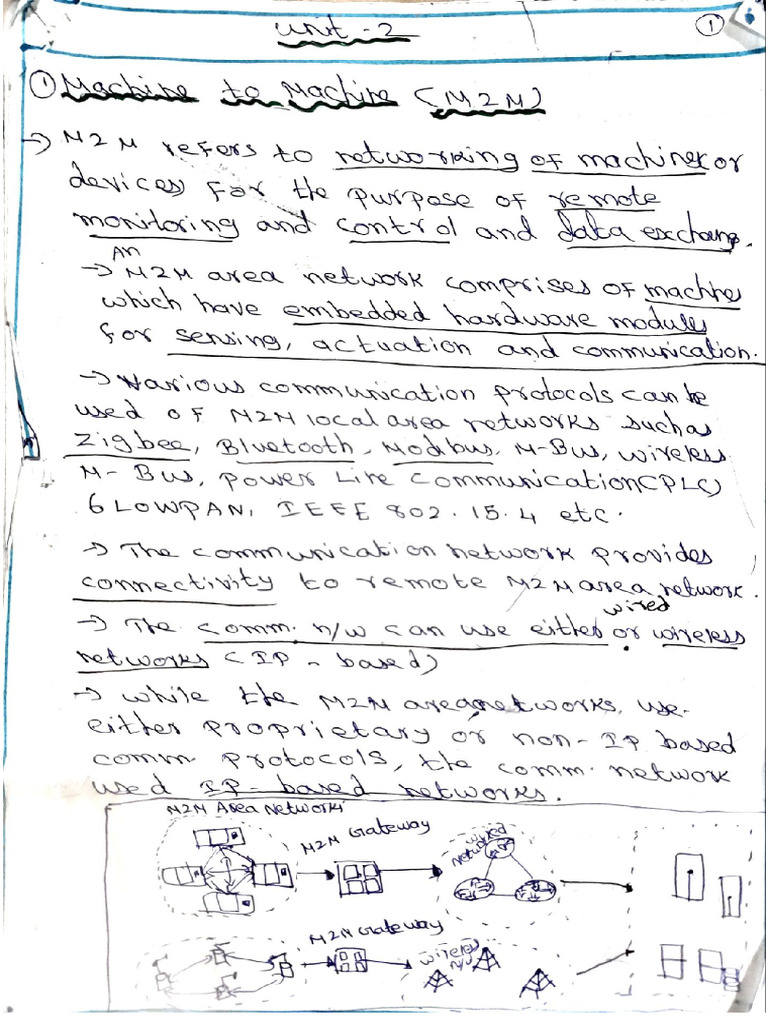 Unit - 2
1
① Machine to Machine (M2M)
→ M2M refers to networking of machines or
devices for the purpose of remote
monitoring and control and data exchange.
An
→ M2M area network comprises of machines
which have embedded hardware modules
for sensing, actuation and communication.
→ Various communication protocols can be
used of M2M local area networks such as
Zigbee, Bluetooth, Modbus, M-Bus, wireless
M-Bus, Power Line Communication (PLC)
6LOWPAN, IEEE 802.15.4 etc.
→ The communication network provides
connectivity to remote M2M area network.
wired
→ The comm. n/w can use either or wireless
networks (IP-based)
→ while the M2M area networks use
either proprietary or non-IP based
comm protocols, the comm. network
used IP-based networks.
M2M Area Networks
M2M Gateway
wired
network
M2M Gateway
wireless
n/w